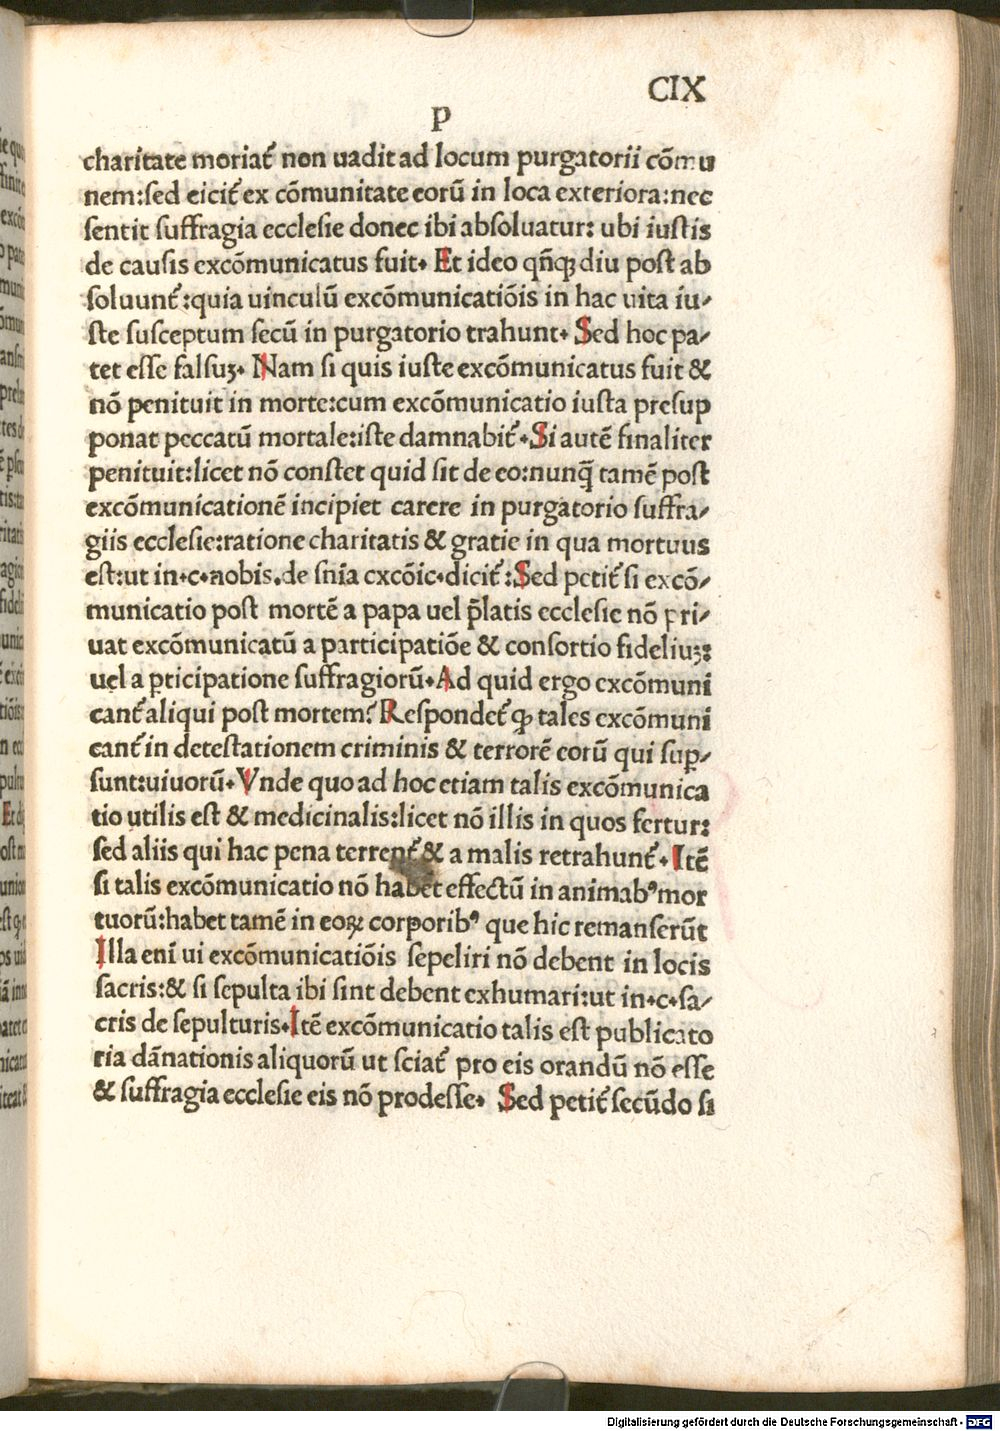 CIX
P
charitate moriat᷑ non uadit ad locum purgatorii cōmu
nem:sed eicit᷑ ex cōmunitate eorū in loca exteriora:nec
sentit suffragia ecclesie donec ibi absoluatur: ubi iustis
de causis excōmunicatus fuit. Et ideo qñqꝫ diu post ab
soluunt᷑:quia uinculū excōmunicatiōis in hac uita iu-
ste susceptum secū in purgatorio trahunt. Sed hoc pa-
tet esse falsuꝫ. Nam si quis iuste excōmunicatus fuit &
nō penituit in morte:cum excōmunicatio iusta presup
ponat peccatū mortale:iste damnabit᷑. Si autē finaliter
penituit:licet nō constet quid sit de eo:nunq̃ tamē post
excōmunicationē incipiet carere in purgatorio suffra-
giis ecclesie:ratione charitatis & gratie in qua mortuus
est:ut in.c.nobis.de snīa excōic.dicit᷑:Sed petit᷑ si excō-
municatio post mortē a papa uel p̄latis ecclesie nō pri-
uat excōmunicatū a participatiōe & consortio fideliuꝫ:
uel a ꝑticipatione suffragiorū. Ad quid ergo excōmuni
cant᷑ aliqui post mortem? Respondet᷑ ꝙ tales excōmuni
cant᷑ in detestationem criminis & terrorē eorū qui suꝑ-
sunt:uiuorū. Vnde quo ad hoc etiam talis excōmunica
tio utilis est & medicinalis:licet nō illis in quos fertur:
sed aliis qui hac pena terrent᷑ & a malis retrahunt᷑. Itē
si talis excōmunicatio nō habet effectū in animabꝰ mor
tuorū:habet tamē in eoꝝ corporibꝰ que hic remanserūt
Illa enī ui excōmunicatiōis sepeliri nō debent in locis
sacris:& si sepulta ibi sint debent exhumari:ut in.c.sa-
cris de sepulturis. Itē excōmunicatio talis est publicato
ria dānationis aliquorū ut sciat᷑ pro eis orandū nō esse
& suffragia ecclesie eis nō prodesse. Sed petit᷑ secūdo si
Digitalisierung gefördert durch die Deutsche Forschungsgemeinschaft - DFG